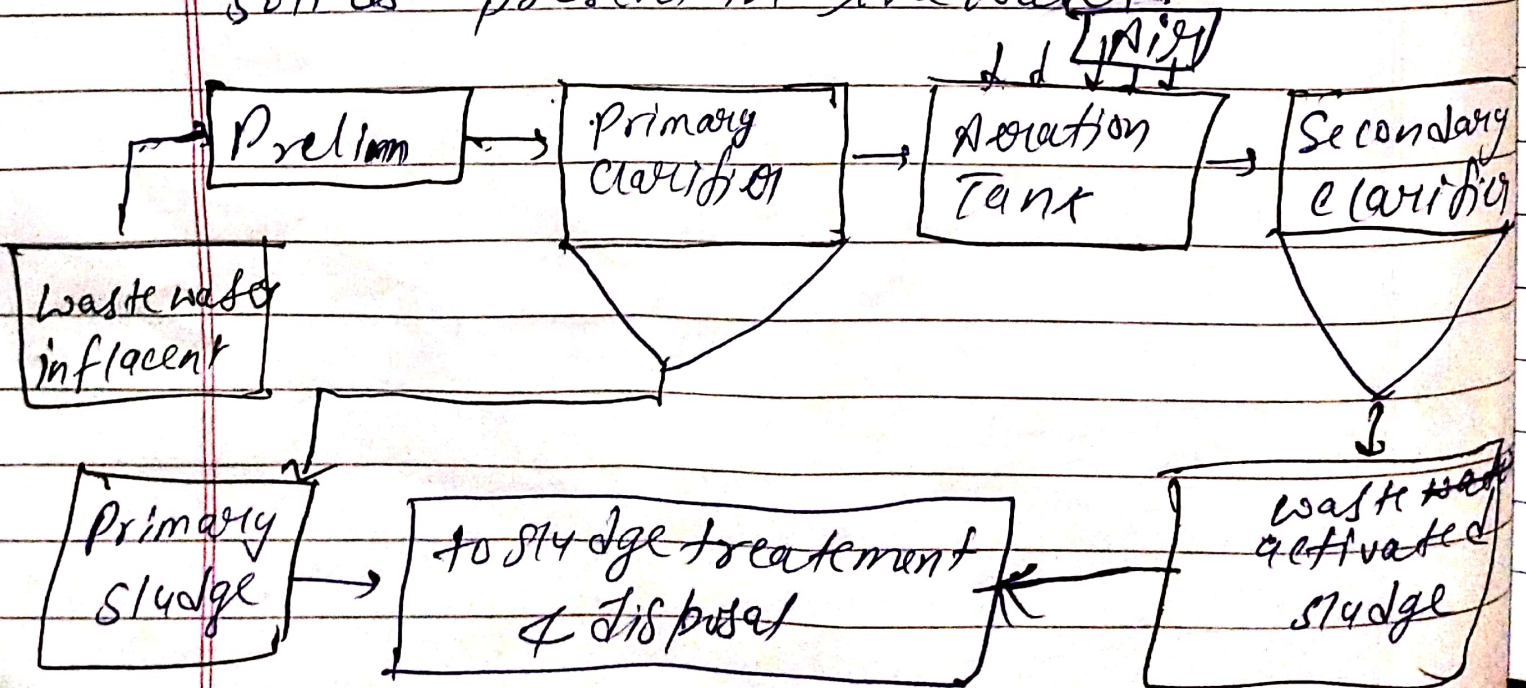 Air
Prelimn
Primary
Clarifier
Aeration
Tank
Secondary
Clarifier
Wastewater
inflacent
Primary
Sludge
to Sludge treatement
& disposal
waste
activated
sludge